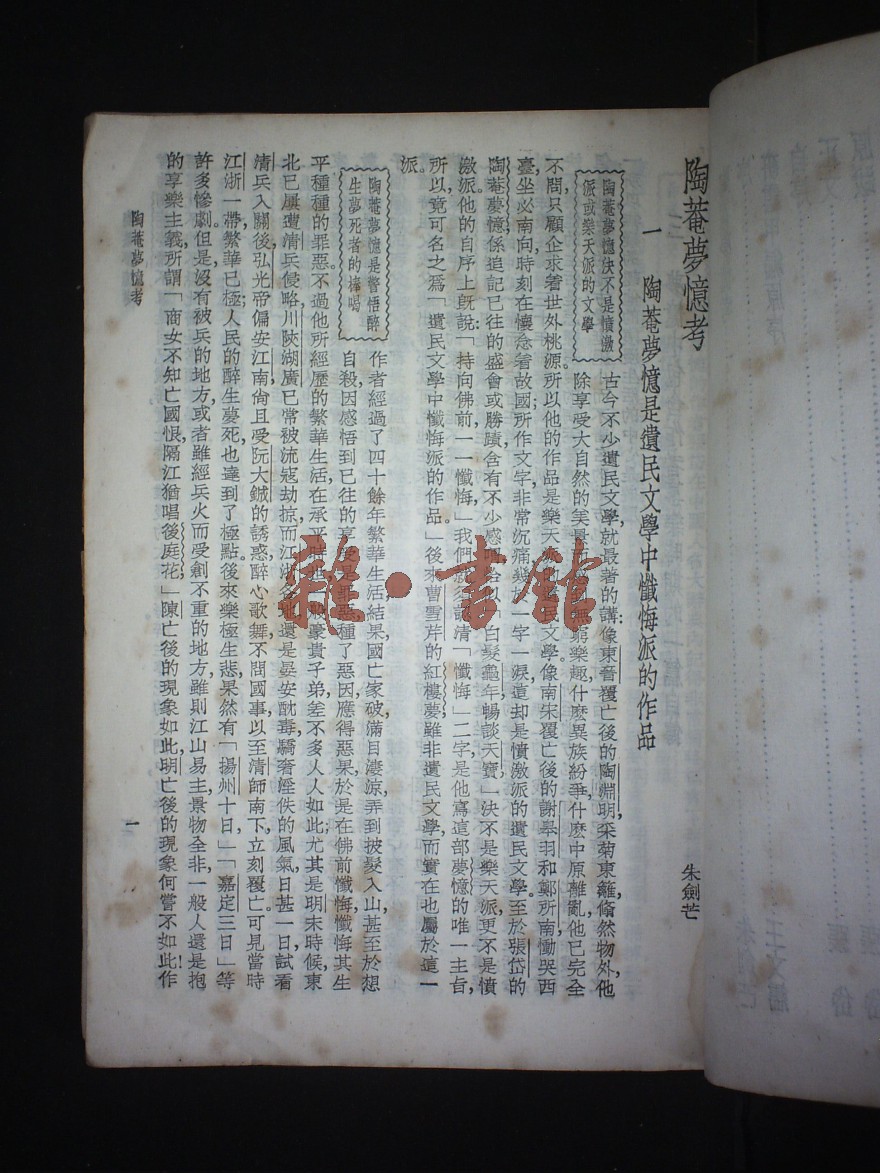 陶菴夢憶考
朱劍芒
一 陶菴夢憶是遺民文學中懺悔派的作品
陶菴夢憶決不是憤激
派或樂天派的文學
古今不少遺民文學,就最著的講,像東晉覆亡後的陶淵明,采菊東籬,翛然物外,他
不問,只顧企求着世外桃源。所以他的作品是樂天派的遺民文學。像南宋覆亡後的謝皋羽和鄭所南,慟哭西
除享受大自然的美景 無窮樂趣,什麼異族紛爭,什麼中原離亂,他已完全
臺,坐必南向,時刻在懷念着故國,所作文字,非常沉痛,幾於一字一淚,這却是憤激派的遺民文學。至於張岱的
陶菴夢憶,係追記已往的盛會或勝蹟,含有不少感 以「白髮龜年暢談天寶,」決不是樂天派,更不是憤
激派,他的自序上既說:「持向佛前,一一懺悔,」我們就須認清「懺悔」二字,是他寫這部夢憶的唯一主旨,
所以竟可名之爲「遺民文學中懺悔派的作品。」後來曹雪芹的紅樓夢,雖非遺民文學,而實在也屬於這一
派。
陶菴夢憶是警悟醉
生夢死者的棒喝
作者經過了四十餘年繁華生活,結果國亡家破,滿目淒涼,弄到披髮入山,甚至於想
自殺,因感悟到已往的享受是罪惡,種了惡因,應得惡果,於是在佛前懺悔,懺悔其生
平種種的罪惡。不過他所經歷的繁華生活,在承平時世,一般豪貴子弟,差不多人人如此;尤其是明末時候,東
北已屢遭清兵侵略,川陝湖廣,已常被流寇劫掠,而江浙各地,還是晏安酖毒,驕奢淫佚的風氣,日甚一日,試看
清兵入關後,弘光帝偏安江南,尙且受阮大鋮的誘惑,醉心歌舞,不問國事,以至清師南下,立刻覆亡。可見當時
江浙一帶,繁華已極;人民的醉生夢死,也達到了極點。後來樂極生悲,果然有「揚州十日,」「嘉定三日」等
許多慘劇。但是,沒有被兵的地方,或者雖經兵火而受創不重的地方,雖則江山易主,景物全非,一般人還是抱
的享樂主義,所謂「商女不知亡國恨,隔江猶唱後庭花。」陳亡後的現象如此,明亡後的現象何嘗不如此!作
陶菴夢憶考
一
雜·書館